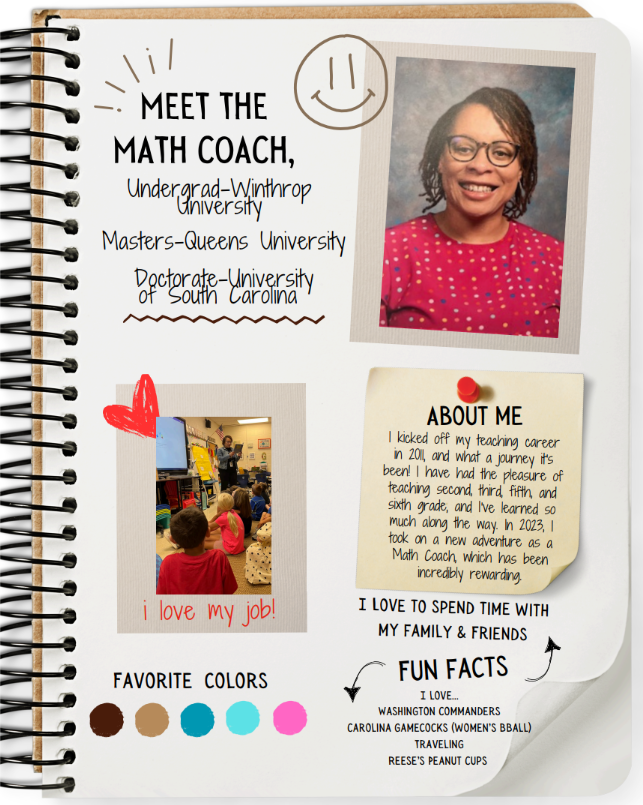 MEET THE
MATH COACH,
Undergrad-Winthrop
University
Masters-Queens University
Doctorate-University
of South Carolina
ABOUT ME
I kicked off my teaching career
in 2011, and what a journey it's
been! I have had the pleasure of
teaching second, third, fifth, and
sixth grade, and I've learned so
much along the way. In 2023, I
took on a new adventure as a
Math Coach, which has been
incredibly rewarding.
i love my job!
I LOVE TO SPEND TIME WITH
MY FAMILY & FRIENDS
FAVORITE COLORS
FUN FACTS
I LOVE...
WASHINGTON COMMANDERS
CAROLINA GAMECOCKS (WOMEN'S BBALL)
TRAVELING
REESE'S PEANUT CUPS